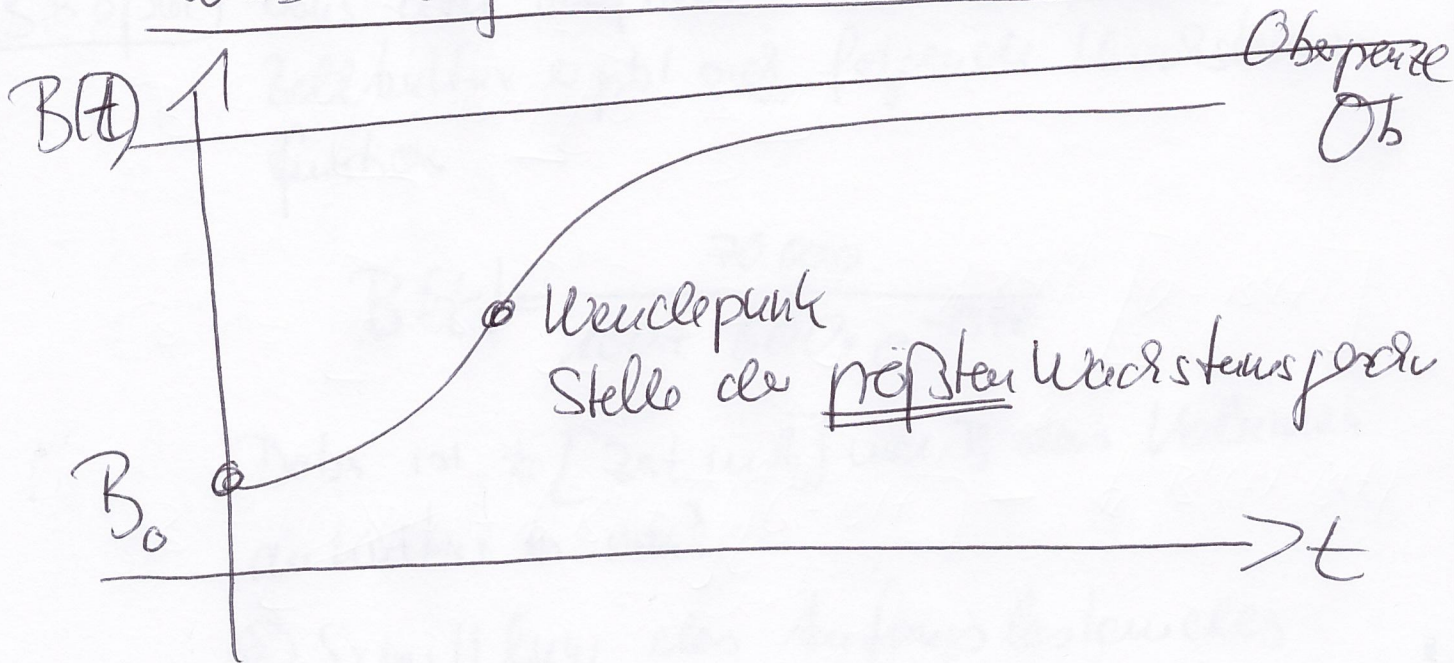 Obergrenze
B(t)
Ob
Wendepunk
Stelle der größten Wachstumsgeschw
B₀
t